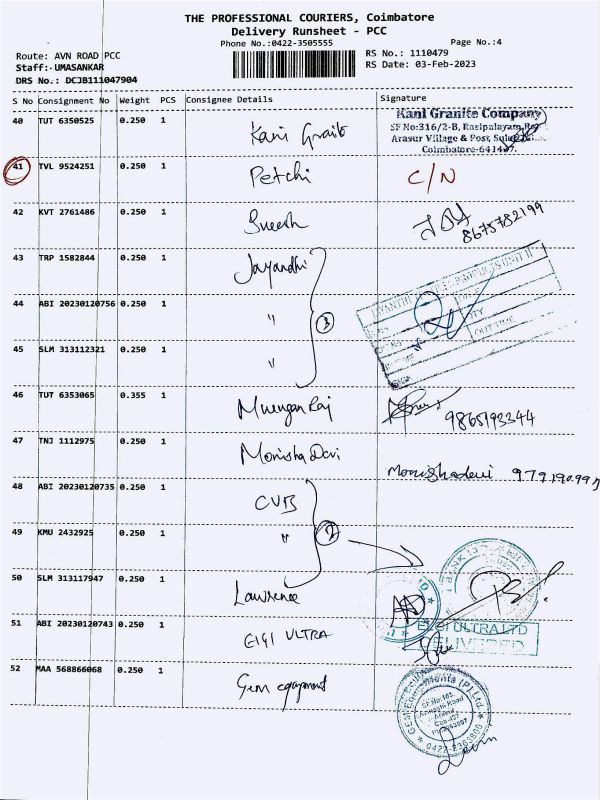 THE PROFESSIONAL COURIERS, Coimbatore
Delivery Runsheet - PCC
Phone No.:0422-3505555
Page No.:4
Route: AVN ROAD PCC
Staff:-UMASANKAR
DRS No.: DCJB111047904
RS No.: 1110479
RS Date: 03-Feb-2023
S No Consignment No Weight PCS Consignee Details Signature
40 TUT 6350525 0.250 1 Kani
Kani Granite Company
SF No:316/2-B, Rasipalayam
Arasur Village & Post,
Coimbatore-641407.
41 TVL 9524251 0.250 1 Petchi C/N
42 KVT 2761486 0.250 1 Suresh 8675782199
43 TRP 1582844 0.250 1 Jayandhi
44 ABI 20230120756 0.250 1 " 3
UNIT II
OUT TIME
45 SLM 313112321 0.250 1 "
46 TUT 6353065 0.355 1 Murugan Raj 9865193344
47 TNJ 1112975 0.250 1 Monisha Devi
Monishadevi
48 ABI 20230120735 0.250 1 CUB
49 KMU 2432925 0.250 1 " 2
50 SLM 313117947 0.250 1 Lawrence
51 ABI 20230120743 0.250 1 ELGI ULTRA
ELGI ULTRA LTD
DELIVERED
52 MAA 568866068 0.250 1 Gem equipment